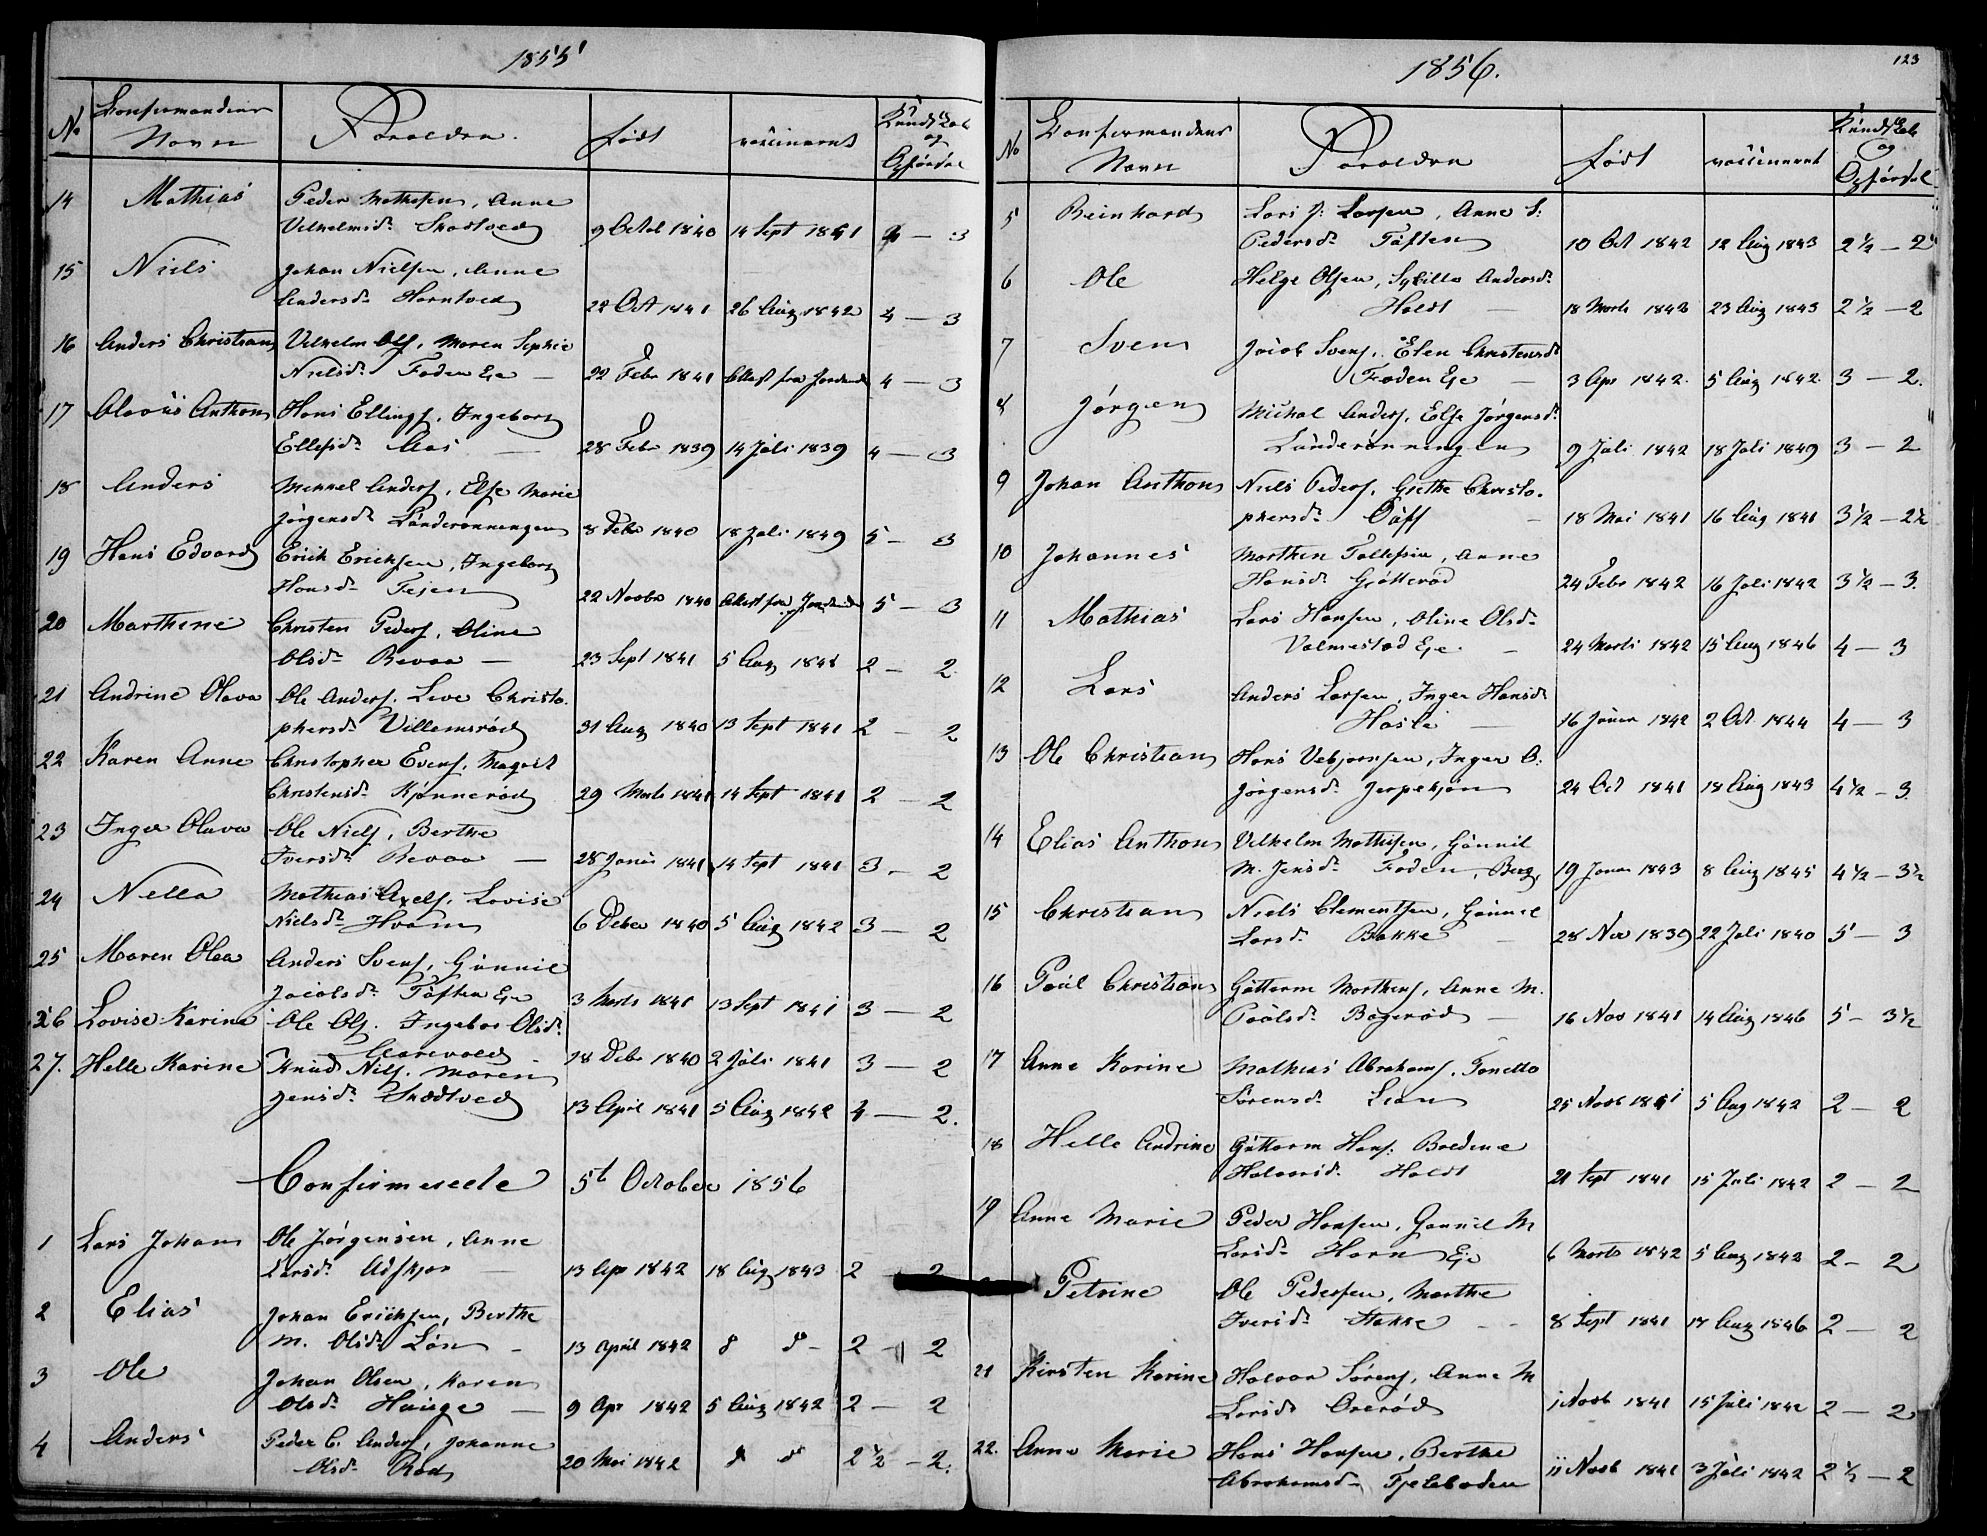 1855
No Confirmandens Navn Forældre født vaccineret Kundskab og Opførsel
14 Mathias Peder Mathisen, Anne
Vilhelmsdr. Skodtved 9 Octob 1840 14 Sept 1841 4 — 3
15 Niels Johan Nielsen, Anne
Andersdr. Horntved 22 Oct 1841 26 Aug 1842 4 — 3
16 Anders Christian Vilhelm Ols, Maren Sophie
Nielsdr. Foden Eje — 22 Febr 1841 Attest fra 4 — 3
17 Olavus Anthon Hans Ellings, Ingeborg
Ellefsdr. Aas — 28 Febr 1839 14 Juli 1839 4 — 3
18 Anders Mikkel Anders, Else Marie
Jørgensdr. Lunderønningen 8 Debr 1840 18 Juli 1849 5 — 3
19 Hans Edvard Erich Erichsen, Ingeborg
Hansdr. Fejen 22 Novbr 1840 Attest fra 5 — 3
20 Marthine Christen Peders, Oline
Olsdr. Bevaa — 23 Sept 1841 5 Aug 1841 2 — 2.
21 Andrine Olava Ole Anders, Live Christo.
phersdr. Villemsrød 31 Aug 1840 13 Sept 1841 2 — 2
22 Karen Anne Christopher Evens, Magrit
Christensdr. Kjønnerød 29 Marts 1841 14 Sept 1841 2 — 2
23 Inger Olava Ole Niels, Berthe
Iversdr. Bevaa — 28 Januar 1841 14 Sept 1841 3 — 2
24 Nella Mathias Axels, Lovise
Nielsdr. Hvam 6 Debr 1840 5 Aug 1842 3 — 2
25 Maren Olea Anders Svens, Gunnil
Jacobsdr. Toften Eje 3 Marts 1841 13 Sept 1841 3 — 2
26 Lovise Karine Ole Ols. Ingebor Olsdr.
Aarevold 18 Debr 1840 2 Juli 1841 3 — 2
27. Helle Karine Knud Nils. Maren
Jensdr. Skodtved 13 April 1841 5 Aug 1842 4 — 2.
Confirmerede 5t October 1856
1 Lars Johan Ole Jørgensen, Anne
Larsdr. Adskjør — 13 Apr 1842 18 Aug 1843 2 — 2
2 Elias Johan Erichsen, Berthe
M. Olsdr. Løn — 13 April 1842 d d — 2 — 2
3 Ole Johan Olsen, Karen
Olsdr. Hauge — 9 Apr 1842 5 Aug 1842 2 — 2
4 Anders Peder C. Anders, Johanne
Olsdr. Rød 20 Mai 1842 d d 2 ½ — 2.
1856.
123
No Confirmandens Navn Forældre født vaccineret Kundskab og Opførsel
5 Reinhard Lars J. Larsen, Anne S.
Pedersdr. Toften 10 Oct 1842 12 Aug 1843 2 ½ — 2
6 Ole Helge Olsen, Sybille Andersdr.
Holdt — 18 Marts 1843 23 Aug 1843 2 ½ — 2
7 Sven Jacob Svens, Elen Christensdr
Foden Eje — 3 Apr 1842. 5 Aug 1842 3 — 2.
8 Jørgen Michal Anders, Else Jørgensdr.
Lunderønningen 9 Juli 1842 18 Juli 1849 3 — 2
9 Johan Anthon Niels Peders, Grethe Christo.
phersdr. — 18 Mai 1841 16 Aug 1841 3 ½ — 2 ½
10 Johannes Morthen Tollefsen, Anne
Hansdr. Grøtterød 24 Febr 1842 16 Juli 1842 3 ½ — 3.
11 Mathias Lars Hansen, Oline Olsdr.
Valmestad Eje. — 24 Marts 1842 15 Aug 1846 4 — 3
12 Lars Anders Larsen, Inger Hansdr
Hasle — 16 Januar 1842 2 Oct. 1844 4 — 3
13 Ole Christian Hans Vebjørnsen, Inger O.
Jørgensdr. Jerpekjøn 24 Oct 1841 18 Aug 1843 4 ½ — 3.
14 Elias Anthon Vilhelm Mathisen, Gunnil
M. Jensdr. Foden, Berg, 19 Januar 1843 8 Aug 1845 4 ½ — 3 ½
15 Christian Niels Clementsen, Gunnil
Larsdr. Bakke — 28 Nov 1839 22 Juli 1840 5 — 3
16 Paul Christian Guttorm Morthens, Anne M.
Paulsdr. Bogerød — 16 Nov 1841 14 Aug 1846 5 — 3 ½
17 Anne Karine Mathias Abrahams, Tonette
Sørensdr. Lian 25 Novb 1841 5 Aug 1842 2 — 2
18 Helle Andrine Guttorm Hans. Boldene
Halvorsdr. Holdt 21 Sept 1841 15 Juli 1842 2 — 2
19 Anne Marie Peder Hansen, Gunnil M
Larsdr. Horn Eje 6 Marts 1842 5 Aug 1842 2 — 2
Petrine Ole Pedersen, Marthe
Iversdr. Stokke — 8 Sept 1841 17 Aug 1846 2 — 2
21 Kirsten Karine Halvor Sørens, Anne M
Larsdr. Overød 1 Novb 1841 15 Juli 1842 2 — 2
22. Anne Marie Hans Hansen, Berthe
Abrahamsdr. Fjeleboden 11 Novb 1841 3 Juli 1842 2 ½ — 2